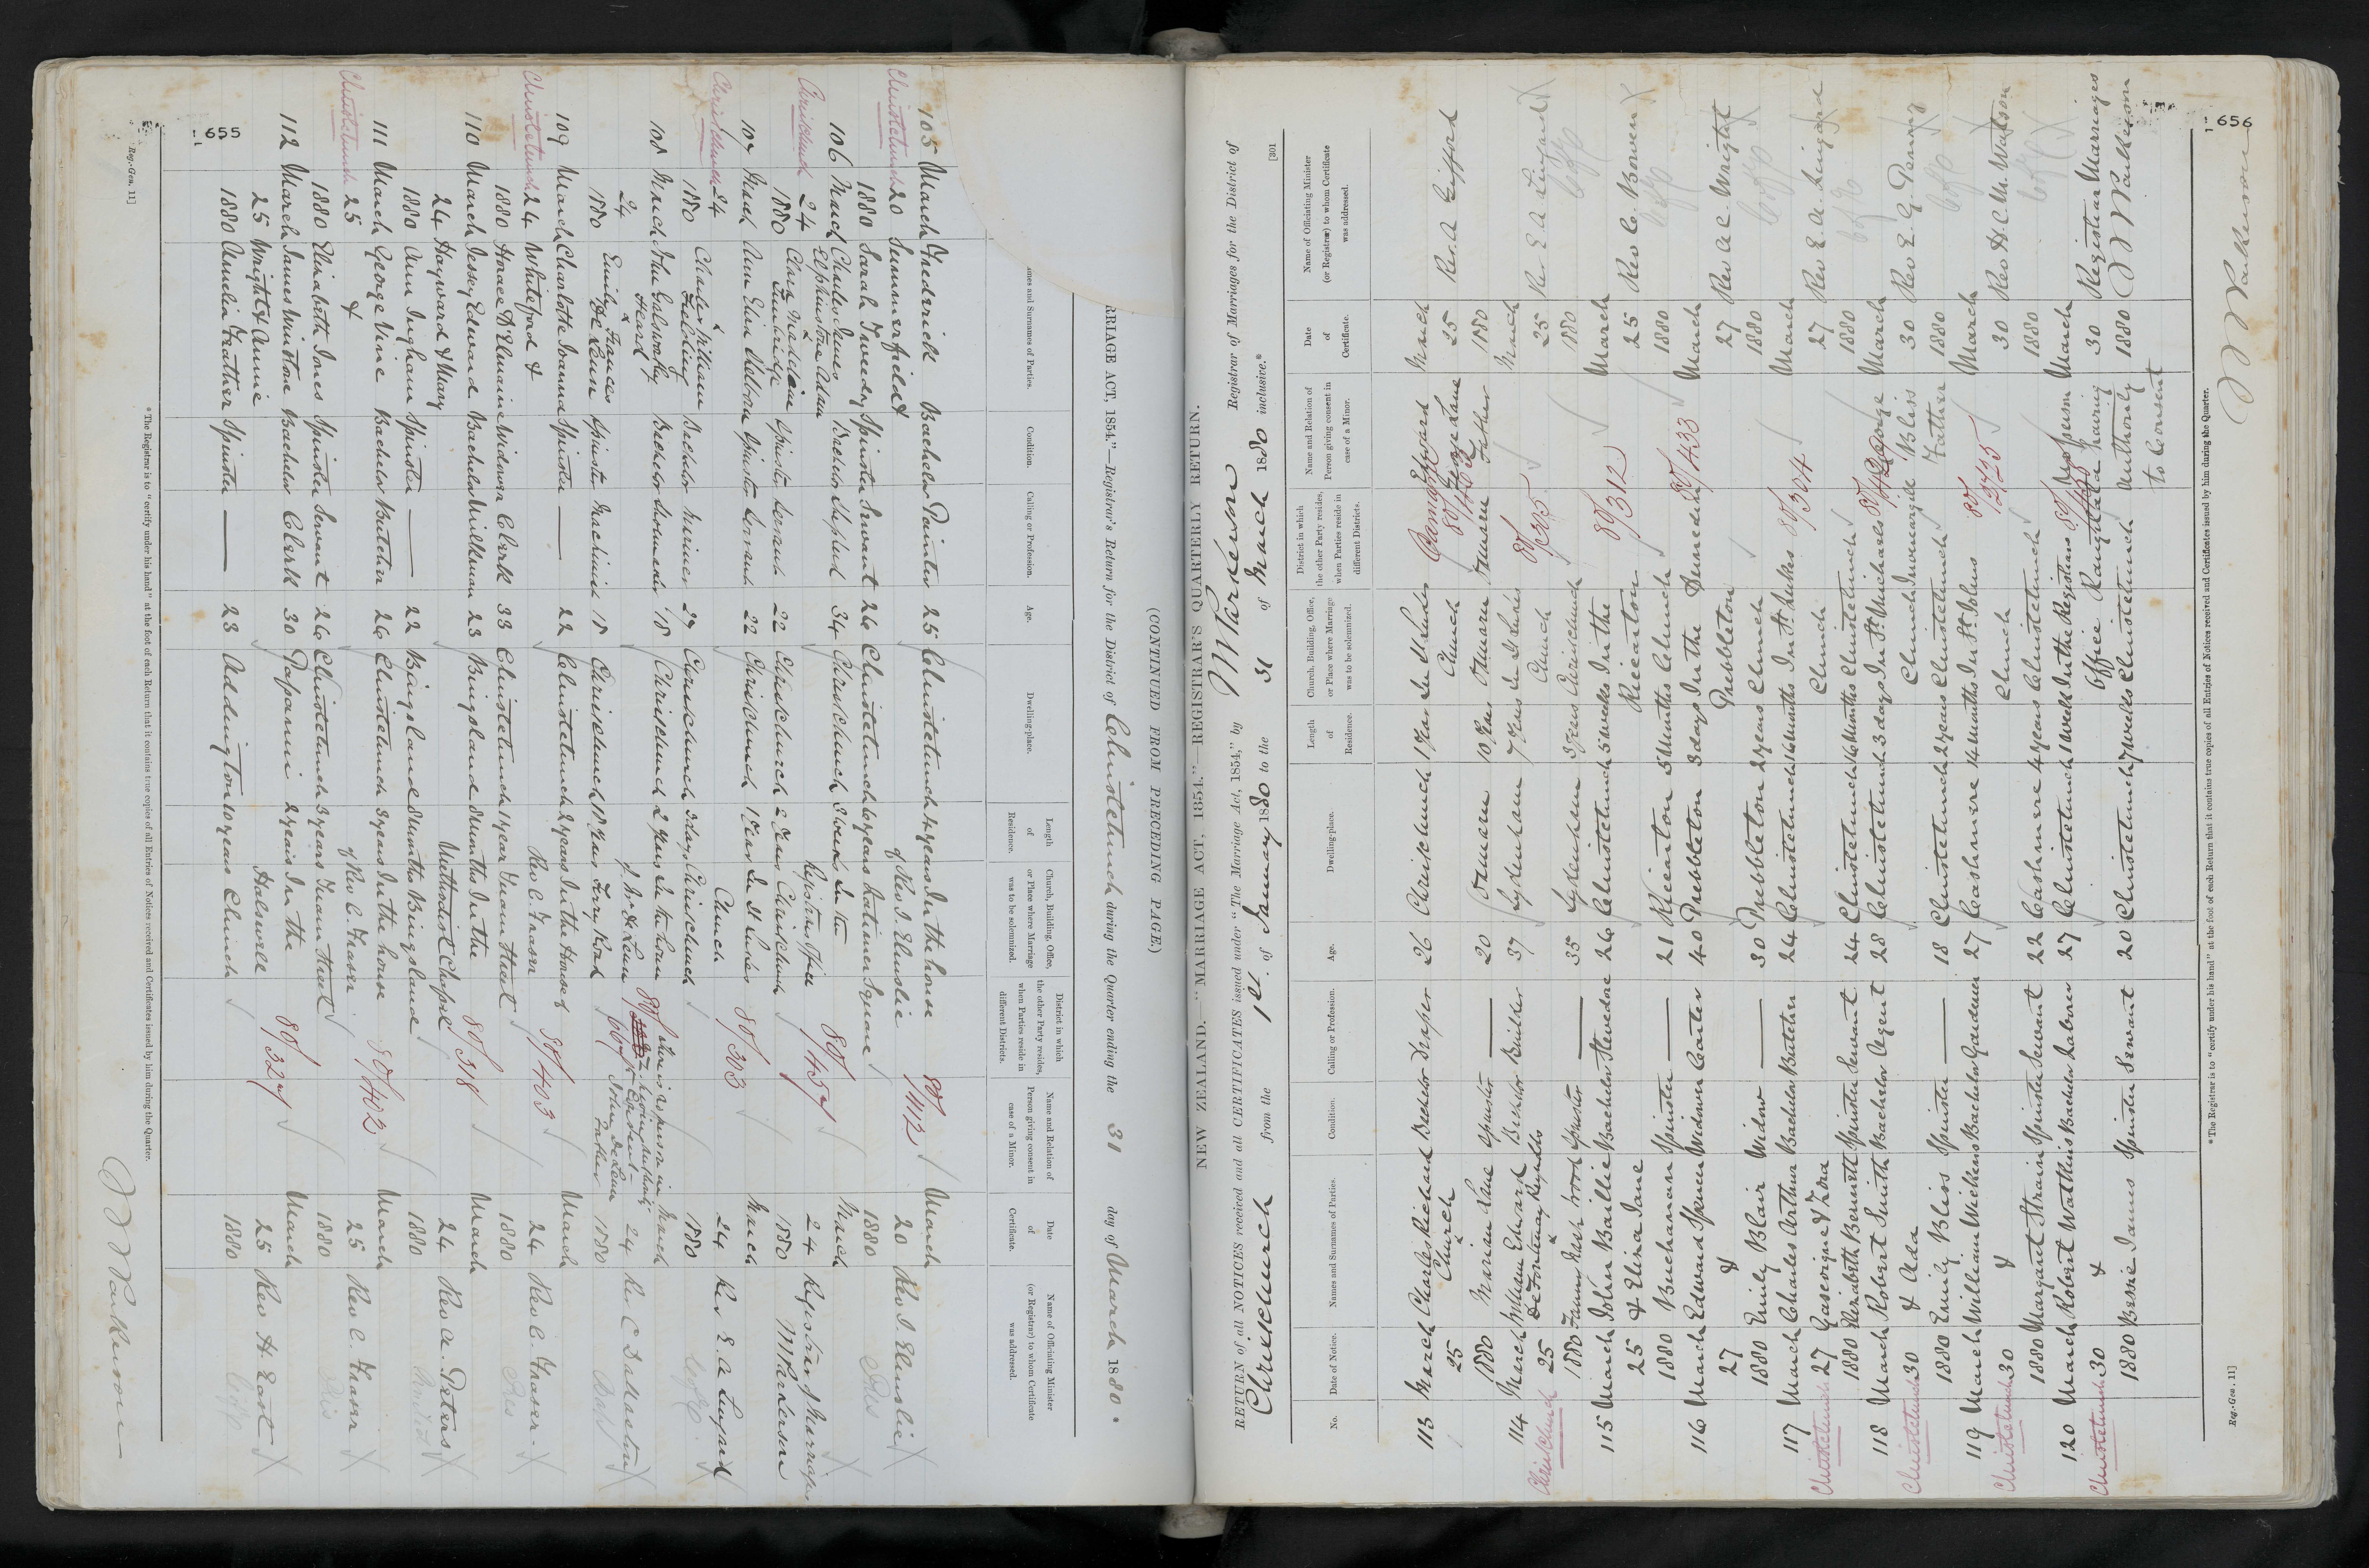 655
(CONTINUED FROM PRECEDING PAGE.)
RRIAGE ACT, 1854."—Registrar's Return for the District of Christchurch during the Quarter ending the 31 day of March 1880.
mes and Surnames of Parties. Condition. Calling or Profession. Age. Dwelling-place. Length of Residence. Church, Building, Office, or Place where Marriage was to be solemnized. District in which the other Party resides, when Parties reside in different Districts. Name and Relation of Person giving consent in case of a Minor. Date of Certificate. Name of Officiating Minister (or Registrar) to whom Certificate was addressed.
105 March Fredrick Bachelor Painter 25 Christchurch 4 years In the house 80/412 March
Christchurch 20 Summerfield & of Rev I. Elmslie 20 Rev I. Elmslie
1880 Sarah Tweedy Spinster Servant 26 Christchurch 6 years Latimer Square 1880
106 March Charles James Bachelor Shepherd 34 Christchurch In the 80/457 March
Christchurch 24 Elphinstone Adam Registrar's Office 24 Registrar of Marriages
1880 Clara Madeline Spinster Servant 22 Christchurch 2 Years Christchurch 1880 Parkerson
107 March Ann Eliza Spinster Servant 22 Christchurch 1 Year In St Lukes 80/303 March
Christchurch 24 Church 24 Rev E. A. Lingard
1880 Charles William Bachelor 29 Christchurch 3 days Christchurch 1880
108 March John Galsworthy Bachelor 18 Christchurch 2 Years In the house March
24 Heard of Mr De Leun 24 Rev C
1880 Emily Frances De Leun Spinster Machinist 18 Christchurch 18 Years Ferry Road John De Leun Father 1880
109 March Charlotte Joanna Spinster — 22 Christchurch 2 years In the House of 80/403 March
Christchurch 24 Whiteford & Rev C. Fraser 24 Rev C. Fraser
1880 Horace D'Elmaine Widower Clerk 33 Christchurch 1 year 1880
110 March Jessey Edward Bachelor Milkman 23 Bingsland In the 80/318 March
24 Hayward & Mary Methodist Chapel 24 Rev A. Peters
1880 Ann Ingham Spinster — 22 Bingsland Bingsland 1880
111 March George Vine Bachelor Butcher 26 Christchurch 3 years In the house 80/402 March
Christchurch 25 & of Rev C. Fraser 25 Rev C. Fraser
1880 Elizabeth Jones Spinster Servant 26 Christchurch 3 years 1880
112 March James Winston Bachelor Clerk 30 Papanui 2 years In the 80/327 March
25 Wright & Annie Halswell 25 Rev H. East
1880 Amelia Feather Spinster — 23 Addington 10 years Church 1880
* The Registrar is to "certify under his hand" at the foot of each Return that it contains true copies of all Entries of Notices received and Certificates issued by him during the Quarter.
Reg.-Gen. 11]
Parkerson
656
[301
NEW ZEALAND.—"MARRIAGE ACT, 1854."—REGISTRAR'S QUARTERLY RETURN.
RETURN of all NOTICES received and all CERTIFICATES issued under "The Marriage Act, 1854," by Parkerson Registrar of Marriages for the District of
Christchurch from the 1st of January 1880 to the 31 of March 1880 inclusive.*
No. Date of Notice. Names and Surnames of Parties. Condition. Calling or Profession. Age. Dwelling-place. Length of Residence. Church, Building, Office, or Place where Marriage was to be solemnized. District in which the other Party resides, when Parties reside in different Districts. Name and Relation of Person giving consent in case of a Minor. Date of Certificate. Name of Officiating Minister (or Registrar) to whom Certificate was addressed.
113 March Charles Richard Bachelor Draper 26 Christchurch 1 Year In St Lukes March
25 Church Church 25 Rev A Gifford
1880 Marian Lane Spinster — 20 Oamaru 10 Years Oamaru Oamaru George Lane Father 1880
114 March William Edward Bachelor Builder 37 Sydenham 7 Years In St Lukes 80/305 March
Christchurch 25 De Fontenay Reynolds Church 25 Rev E A Lingard
1880 Spinster — 35 Sydenham 3 years Christchurch 1880
115 March John Baillie Bachelor Stevedore 26 Christchurch 5 weeks In the 80/312 March
25 & Eliza Jane Riccarton 25 Rev C. Bowen
1880 Buchanan Spinster — 21 Riccarton 5 Months Church 1880
116 March Edward Spencer Widower Carter 40 Prebbleton 3 days In the Dunedin 80/433 March
27 & Prebbleton 27 Rev A C. Wright
1880 Emily Blair Widow — 30 Prebbleton 2 years Church 1880
117 March Charles Arthur Bachelor Butcher 24 Christchurch 16 Months In St. Lukes 80/304 March
Christchurch 27 Gascoigne & Church 27 Rev E. A. Lingard
1880 Elizabeth Bennett Spinster Servant 24 Christchurch 16 Months Christchurch 1880
118 March Robert Smith Bachelor Agent 28 Christchurch 3 days In St. Michaels George March
Christchurch 30 & Ada Church Invercargill Bliss 30 Rev E. G. Penny
1880 Emily Bliss Spinster — 18 Christchurch 2 years Christchurch Father 1880
119 March William Wickens Bachelor Gardener 27 Cashmere 4 Months In St. Johns 80/2425 March
Christchurch 30 & Church 30 Rev H. C. M. Watson
1880 Margaret Strain Spinster Servant 22 Cashmere 4 years Christchurch 1880
120 March Robert Watkins Bachelor Laborer 27 Christchurch 1 Week In the Registrars No person March
Christchurch 30 & Office Rangitata having 30 Registrar Marriages
1880 Bessie James Spinster Servant 20 Christchurch 7 weeks Christchurch authority to Consent 1880 Parkerson
* The Registrar is to "certify under his hand" at the foot of each Return that it contains true copies of all Entries of Notices received and Certificates issued by him during the Quarter.
Reg.-Gen. 11]
Parkerson